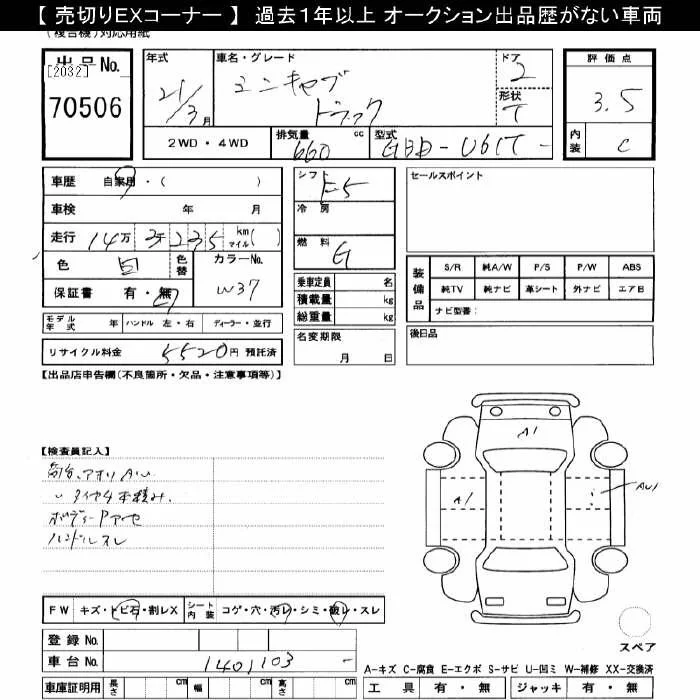 【 売切りEXコーナー 】 過去1年以上 オークション出品歴がない車両
(複合機)対応用紙
出品No.
[2032]
70506
年式 車名・グレード ドア 評価点
21/3月 ミニキャブ 2 3.5
トラック 形状 T
2WD・4WD 排気量 660 cc 型式 GBD-U61T- 内装 C
車歴 自家用・( )
車検 年 月
走行 14万3千235 km マイル( )
色 白 色替 カラーNo. W37
保証書 有・無
モデル年式 年 ハンドル 左・右 ディーラー・並行
リサイクル料金 5520円 預託済
シフト F5
冷房
燃料 G
乗車定員 名
積載量 kg
総重量 kg
名変期限
月 日
セールスポイント
装備品 S/R 純A/W P/S P/W ABS
純TV 純ナビ 革シート 外ナビ エアB
ナビ型番:
後日品
【出品店申告欄(不良箇所・欠品・注意事項等)】
【検査員記入】
荷台、アオリ AU
〃 タイヤ4本積み.
ボディーPアセ
ハンドルスレ
A1
A1
AU1
FW キズ・トビ石・割レX シート内装 コゲ・穴・汚レ・シミ・破レ・スレ
登録No.
車台No. 1401103 -
車庫証明用 長さ cm 幅 cm 高さ cm
スペア
A-キズ C-腐食 E-エクボ S-サビ U-凹ミ W-補修 XX-交換済
工具 有・無 ジャッキ 有・無